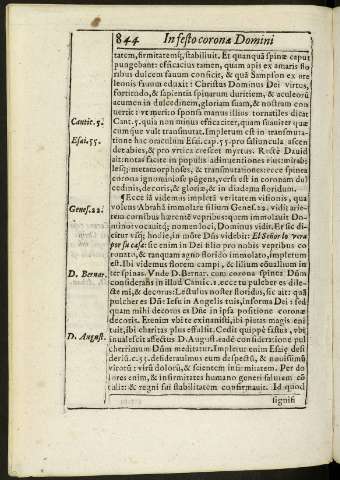 844 In festo coronæ Domini
tatem, firmitatemq́;, stabiliuit. Et quanquã spinæ caput
pungebant: efficacius tamen, quam apis ex amaris flo
ribus dulcem fauum conficit, & quã Sampson ex ore
leonis fauum eduxit: Christus Dominus Dei virtus,
fortitudo, & sapientia spinarum duritiem, & aculeorũ
acumen in dulcedinem, gloriam suam, & nostram con
uertit: vt merito sponsa manus illius tornatiles dicat
Cantic. 5. Cant. 5. quia non minus efficaciter, quam suauiter quæ
cumque vult transmutat. Impletum est in transmuta
Esai. 55. tione hac oraculum Esai. cap. 55. pro saliuncula ascen
det abies, & pro vrtica crescet myrtus. Rectè Dauid
ait: notas facite in populis adinuentiones eius: mirabi
lesq́; metamorphoses, & transmutationes: ecce spinea
corona ignominiosè pũgens, versa est in coronam dul
cedinis, decoris, & gloriæ, & in diadema floridum.
¶ Ecce iã videmus impleri veritatem vitionis, qua
Genes. 22. volens Abrahã immolare filium Genes. 22. vidit arie-
tem cornibus hærentẽ vepribus: quem immolauit Do
mino: vocauitq́; nomen loci, Dominus videt. Et sic di-
citur vsq́; hodie, in mõte Dñs videbit: El Señor lo vera
por su casa: sic enim in Dei filio pro nobis vepribus co
ronato, & tanquam agno florido immolato, impletum
est. Ibi videmus florem campi, & lilium cõuallium in
D. Bernar. ter spinas. Vnde D. Bernar. cum corona spinea Dñm
considerans in illud Cantic. 1. ecce tu pulcher es dile-
cte mi, & decorus. Lectulus noster floridus, sic ait: quã
pulcher es Dñe Iesu in Angelis tuis, in forma Dei: sed
quam mihi decorus es Dñe in ipsa positione coronæ
decoris. Etenim vbi te exinanisti, ibi pietas magis eni
tuit, ibi charitas plus effulsit. Cedit quippè fastus, vbi
D. August. inualescit affectus D. August. eadẽ consideratione pul
cherrimum Dñm meditatur. Impletur enim Esaiæ desi
deriũ. c. 53. desiderauimus eum despectũ, & nouissimũ
virorũ: virũ dolorũ, & scientem infirmitatem. Per do
lores enim, & infirmitates humano generi salutem cõ
tulit: & regni sui stabilitatem confirmauit. Id quod
signifi